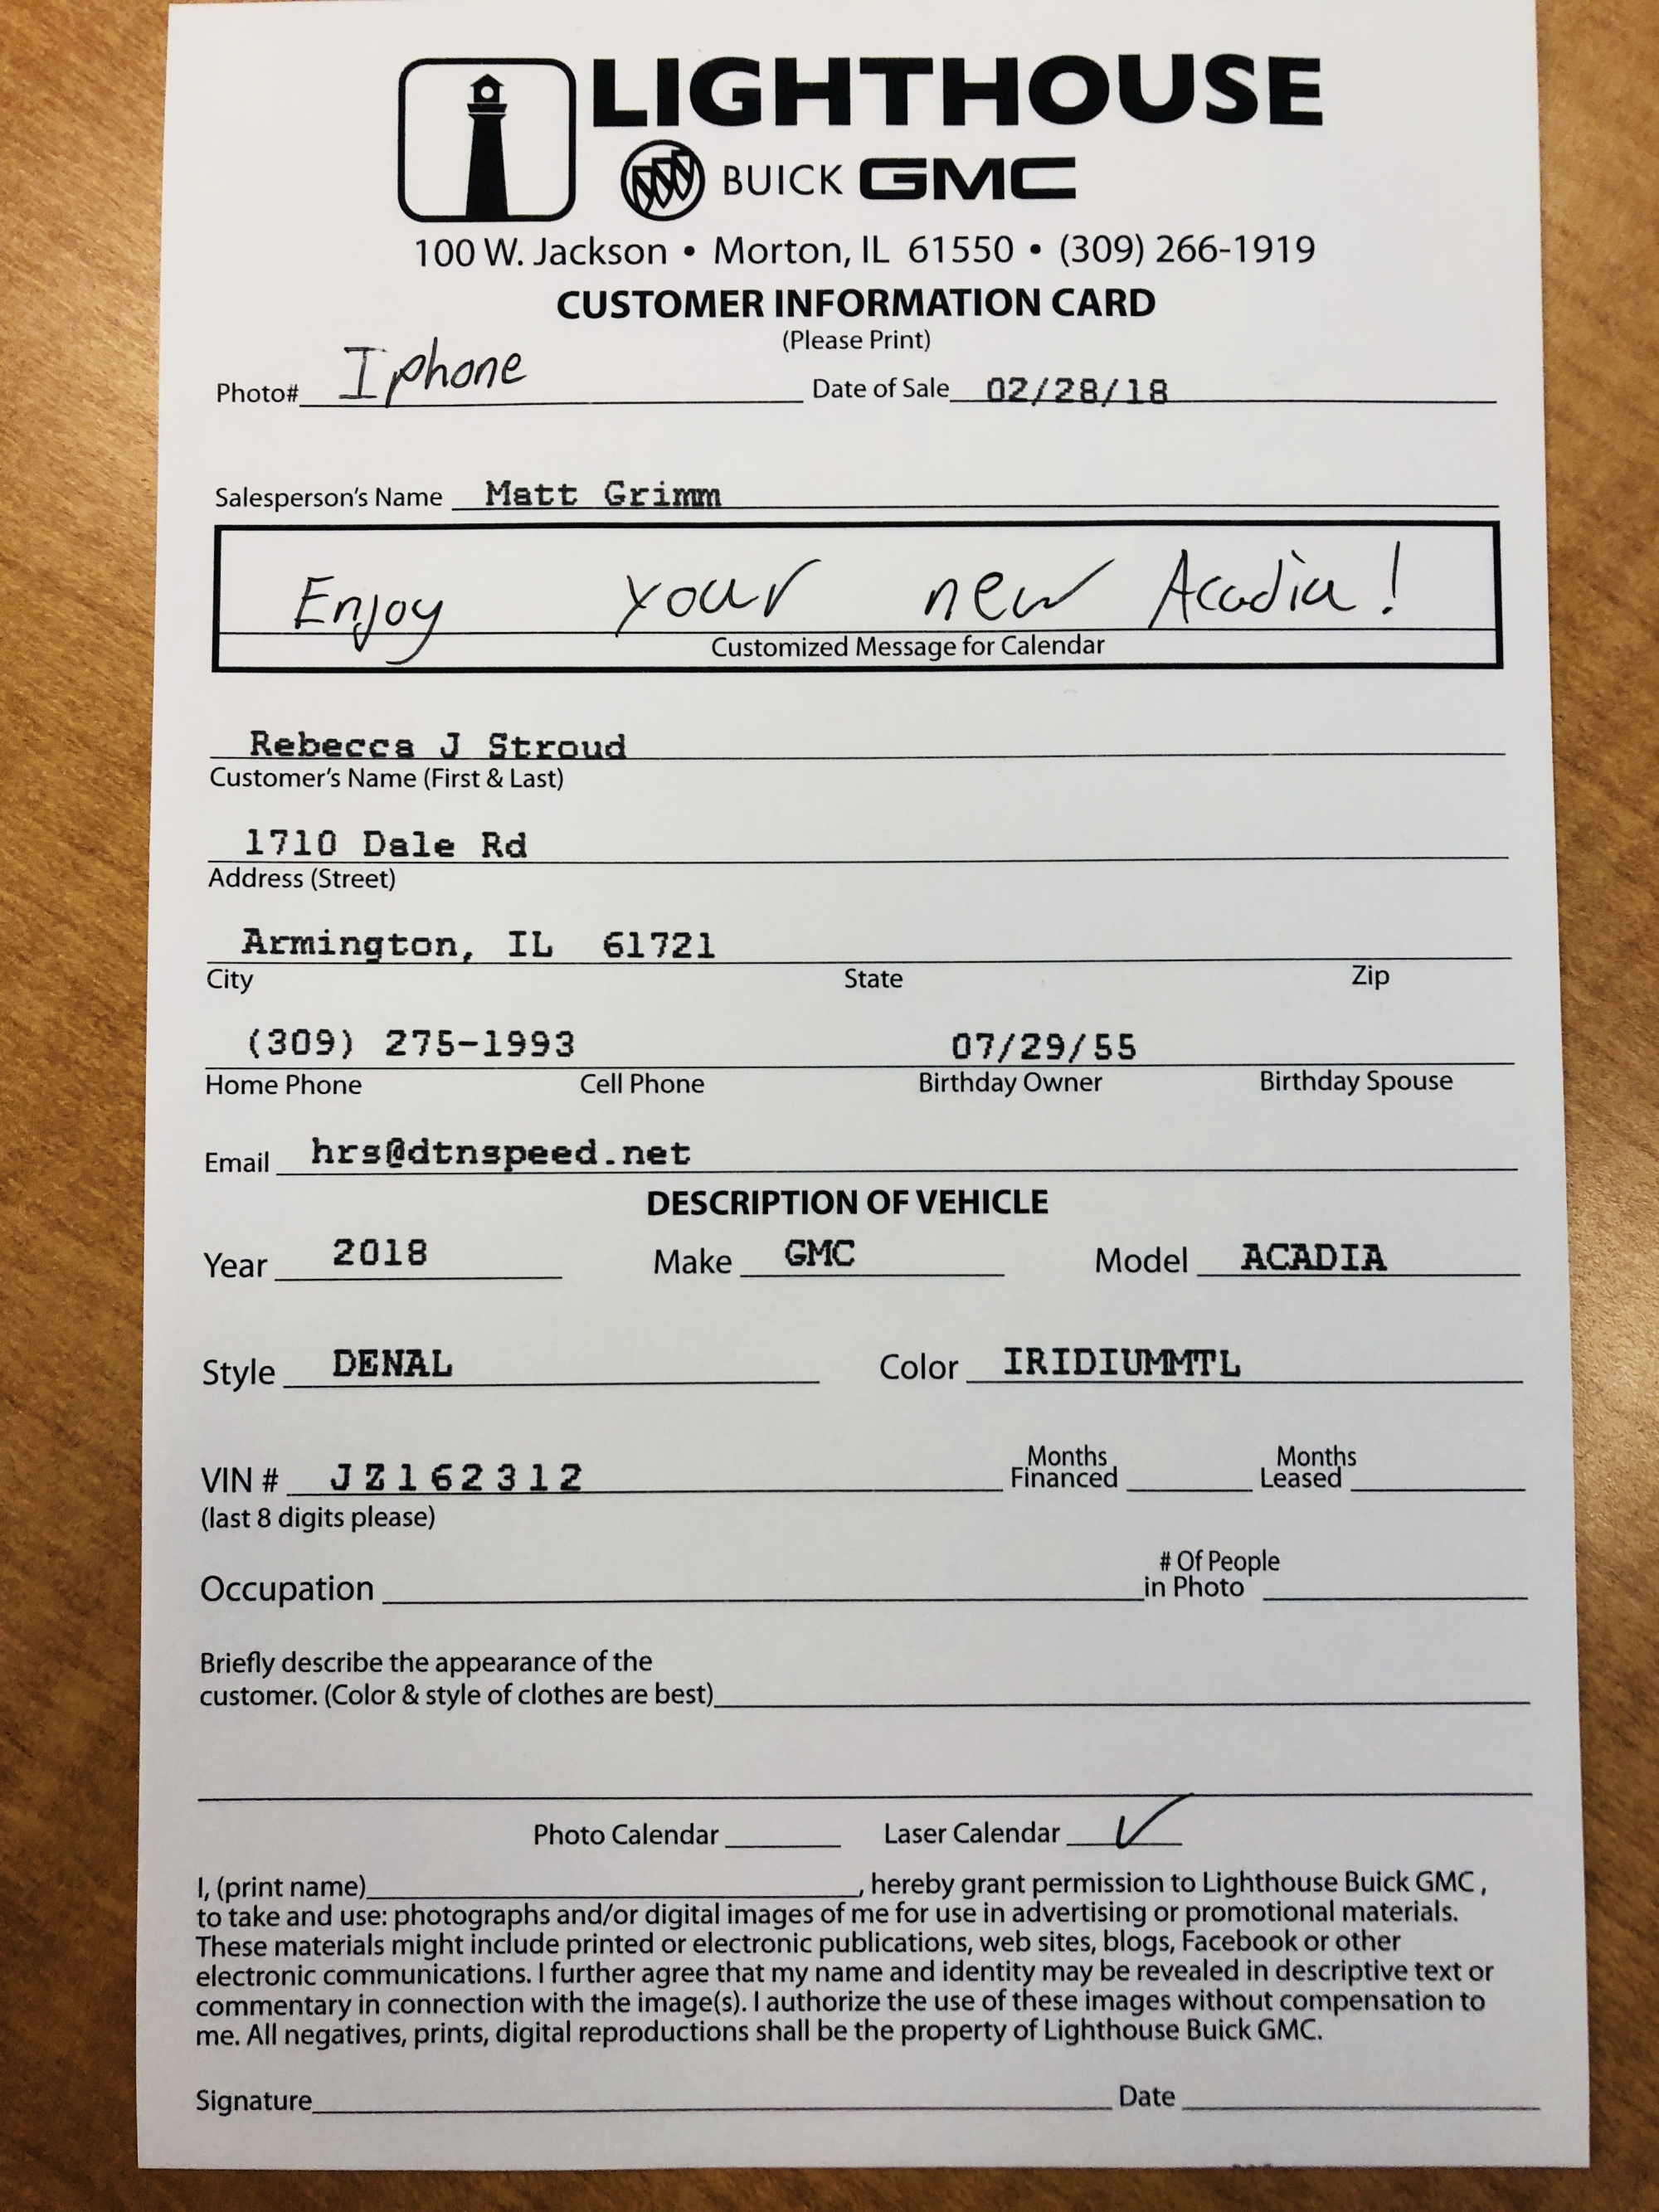 LIGHTHOUSE
BUICK GMC
100 W. Jackson • Morton, IL 61550 • (309) 266-1919
CUSTOMER INFORMATION CARD
(Please Print)
Photo# Iphone Date of Sale 02/28/18
Salesperson's Name Matt Grimm
Enjoy your new Acadia!
Customized Message for Calendar
Rebecca J Stroud
Customer's Name (First & Last)
1710 Dale Rd
Address (Street)
Armington, IL 61721
City State Zip
(309) 275-1993 07/29/55
Home Phone Cell Phone Birthday Owner Birthday Spouse
Email hrs@dtnspeed.net
DESCRIPTION OF VEHICLE
Year 2018 Make GMC Model ACADIA
Style DENAL Color IRIDIUMMTL
Months Months
VIN # JZ162312 Financed Leased
(last 8 digits please)
# Of People
Occupation in Photo
Briefly describe the appearance of the
customer. (Color & style of clothes are best)
Photo Calendar Laser Calendar ✓
I, (print name) , hereby grant permission to Lighthouse Buick GMC ,
to take and use: photographs and/or digital images of me for use in advertising or promotional materials.
These materials might include printed or electronic publications, web sites, blogs, Facebook or other
electronic communications. I further agree that my name and identity may be revealed in descriptive text or
commentary in connection with the image(s). I authorize the use of these images without compensation to
me. All negatives, prints, digital reproductions shall be the property of Lighthouse Buick GMC.
Signature Date